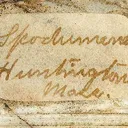 Spodumene
Huntington
Mass.